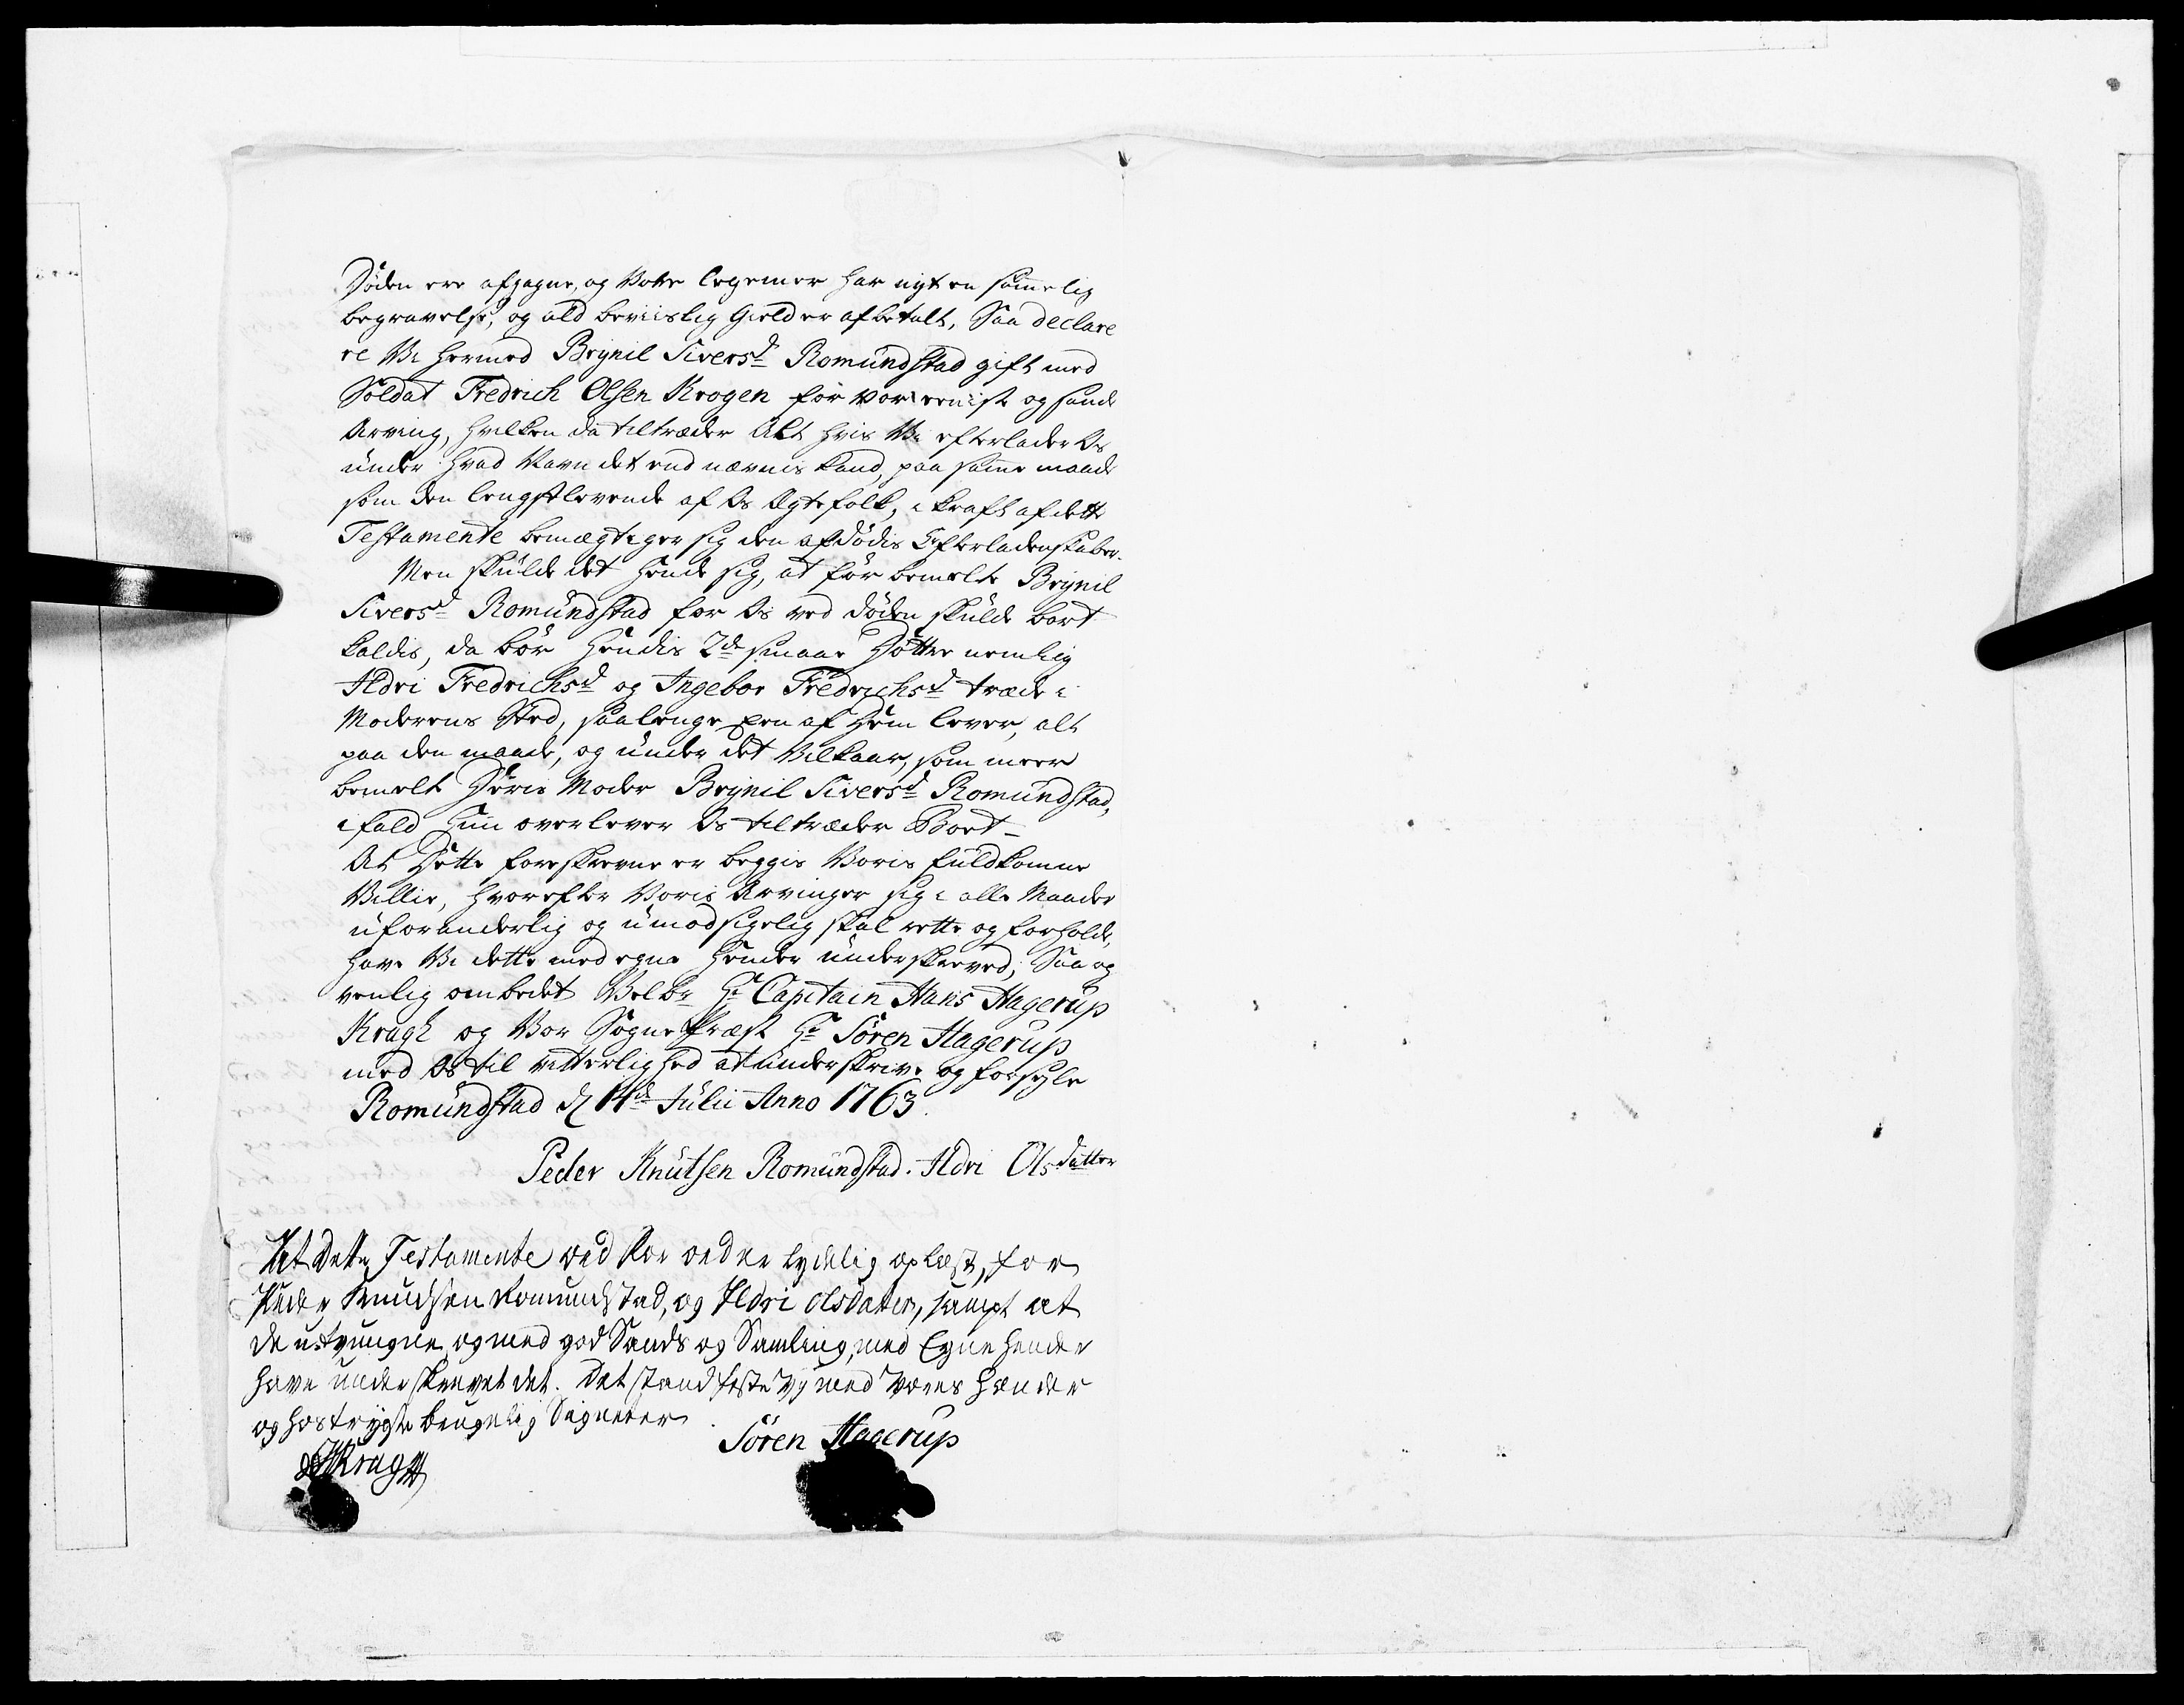 Døden ere afgagne, og Vore legemer har nyt en sømmelig
begravelse, og ald beviislig Gield er afbetalt, Saa declare
re Vi hermed Brynil Sivers<sup>d</sup> Romundstad gift med
Soldat Fredrich Olsen Krogen for vor eeniste og sande
Arving, hvilken da tiltræder Alt hvis Vi efterlader Os
under hvad Navn det end nævnis kand, paa samme maade
som den lengstlevende af Os Ægtefolk, i kraft af dette
Testamente bemægtiger sig den afdødis Efterladenskaber.
Men skulde det hende sig, at før bemelte Brynil
Sivers<sup>d</sup> Romundstad for Os ved døden skulde bort
kaldis, da bør Hendis 2<sup>de</sup> smaae Døttre nemlig
Ildri Fredrichs<sup>d</sup> og Ingebor Fredrichs<sup>d</sup> træde i
Moderens Sted, saalenge een af Dem lever, alt
paa den maade, og under det Vilkaar, som meer
bemelt Deris Moder Brynil Sivers<sup>d</sup> Romundstad,
ifald Hun overlever Os tiltræder Boet-
At Dette foreskrevne er beggis Voris fuldkomne
Villie, hvorefter Voris Arvinger sig i alle Maader
uforanderlig og umodsigelig skal rette og forholde,
have Vi dette med egne hender underskreved; Saa og
venlig ombedet Velb<sup>r</sup> Hr Capitain Hans Hagerup
Kragh og Vor Sogne Præst Hr Søren Hagerup
med Os til vitterlighed at underskrive og forsegle
Romundstad d 14<sup>de</sup> Julii Anno 1763.
Peder Knutsen Romundstad. Ildri Olsdatter
At dette Testamente ord for ord er lydelig oplæst, for
Peder Knudsen Romundstad, og Ildri Olsdatter, sampt at
de utvungne, og med god Sands og Samling, med Egne hender
have underskrevet det. Det stand feste Vj med Vores Hænder
og hostrygte brugelig Signeter
HHKragh
Søren Hagerup